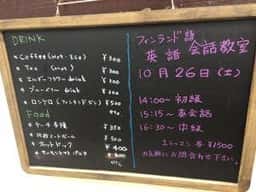 DRINK
Coffee (Hot・Ice) ¥300
Tea (Hot) ¥300
エルダーフラワー drink ¥300
ブルーベリー drink ¥300
ロンケロ (フィンランドビア) ¥500
Food
ケーキ各種 ¥350
ミートボール ¥500
ホットドック ¥400
フィンランド語
英語 会話教室
10月26日(土)
14:00〜 初級
15:15〜 英会話
16:30〜 中級
1レッスン ¥1500
お気軽にお問合わせ下さい。